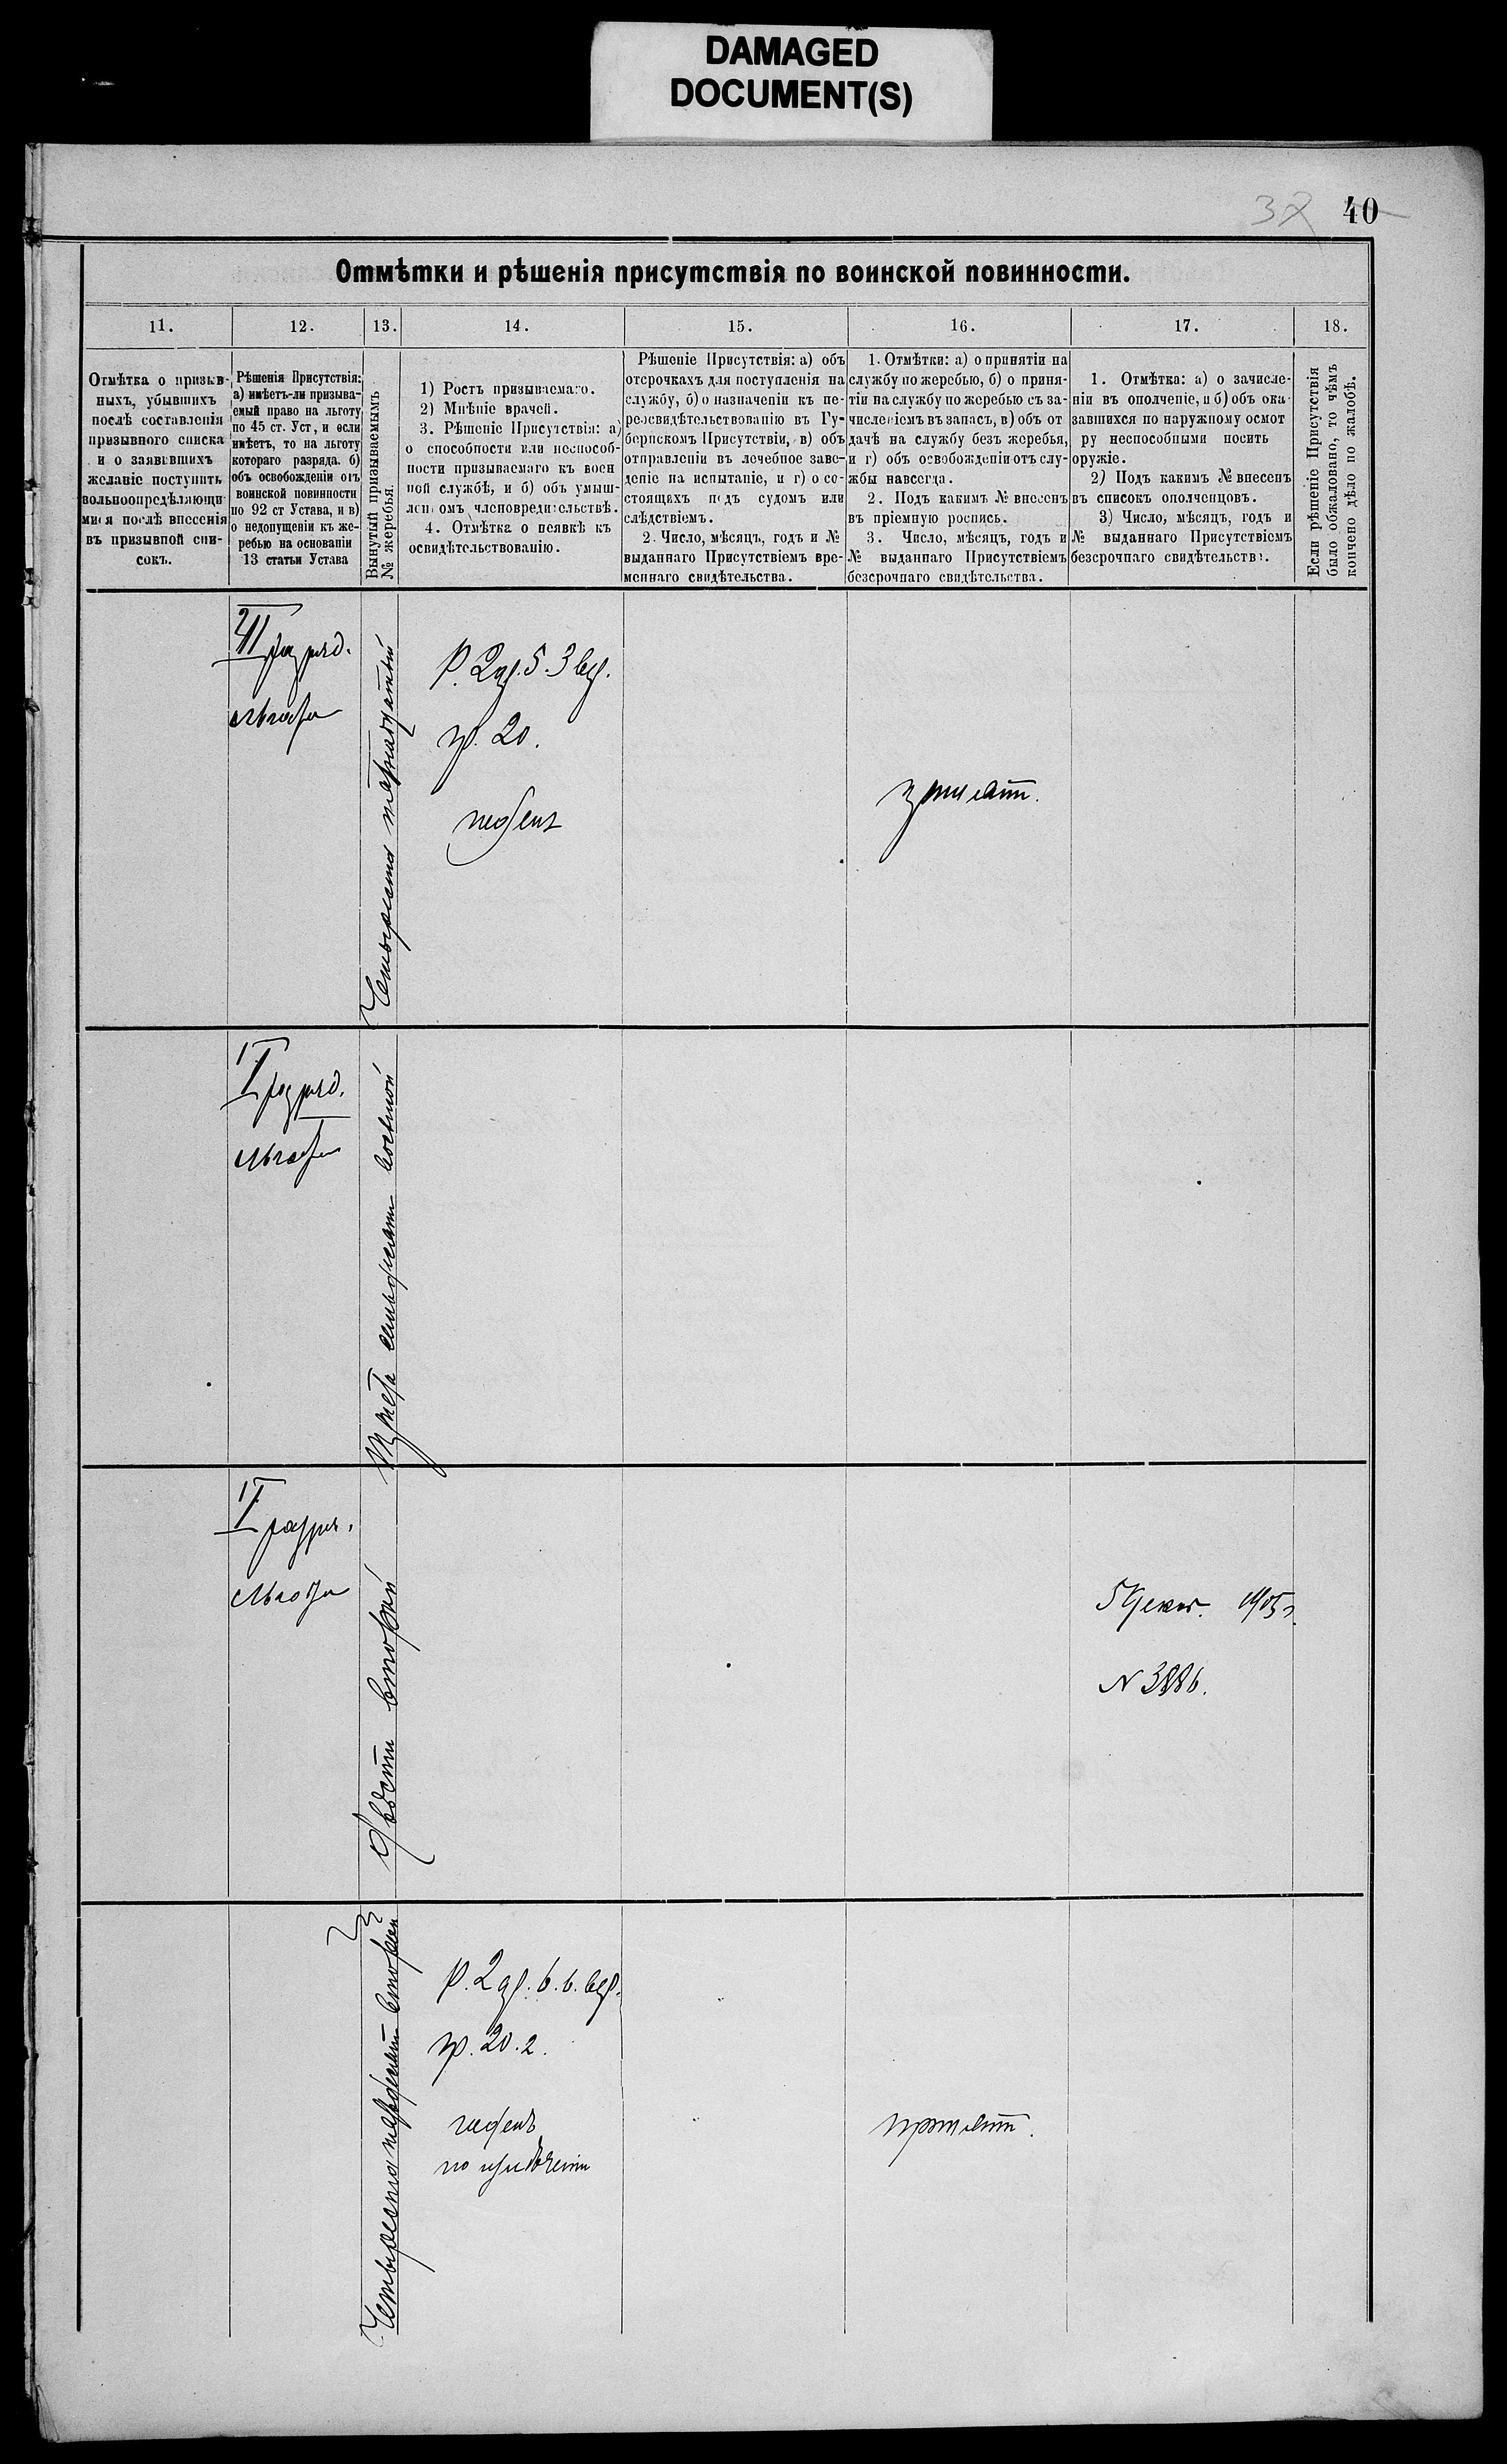 DAMAGED
DOCUMENT(S)
40
Отмѣтки и рѣшенія присутствія по воинской повинности.
11.
12.
13.
14.
15.
16.
17.
18.
Отмѣтка о призыв-
ныхъ, убывшихъ
послѣ составленія
призывного списка
и о заявившихъ
желаніе поступить
вольноопредѣляющи
мися послѣ внесенія
въ призывной спи-
сокъ.
Рѣшенія Присутствія:
а) имѣетъ-ли призыва-
емый право на льготу
по 45 ст. Уст, и если
имѣетъ, то на льготу
котораго разряда. б)
объ освобожденіи отъ
воинской повинности
по 92 ст Устава, и в)
о недопущеніи къ же-
ребью на основаніи
13 статьи Устава
Вынутый призываемымъ
№ жеребья.
1) Ростъ призываемаго.
2) Мнѣніе врачей.
3. Рѣшеніе Присутствія: а)
о способности или неспособ-
ности призываемаго къ воен
ной службѣ, и б) объ умыш-
ленномъ членовредительствѣ.
4. Отмѣтка о неявкѣ къ
освидѣтельствованію.
Рѣшеніе Присутствія: а) объ
отсрочкахъ для поступленія на
службу, б) о назначеніи къ пе-
реосвидѣтельствованію въ Гу-
бернскомъ Присутствіи, в) объ
отправленіи въ лечебное заве-
деніе на испытаніе, и г) о со-
стоящихъ подъ судомъ или
слѣдствіемъ.
2. Число, мѣсяцъ, годъ и №
выданнаго Присутствіемъ вре-
меннаго свидѣтельства.
1. Отмѣтки: а) о принятіи на
службу по жеребью, б) о приня-
тіи на службу по жеребью съ за-
численіемъ въ запасъ, в) объ от
дачѣ на службу безъ жеребья,
и г) объ освобожденіи отъ слу-
жбы навсегда.
2. Подъ какимъ № внесенъ
въ пріемную роспись.
3. Число, мѣсяцъ, годъ и
№ выданнаго Присутствіемъ
безсрочнаго свидѣтельства.
1. Отмѣтка: а) о зачисле-
ніи въ ополченіе, и б) объ ока-
завшихся по наружному осмот
ру неспособными носить
оружіе.
2) Подъ какимъ № внесенъ
въ списокъ ополченцовъ.
3) Число, мѣсяцъ, годъ и
№ выданнаго Присутствіемъ
безсрочнаго свидѣтельства.
Если рѣшеніе Присутствія
было обжаловано, то чѣмъ
кончено дѣло по жалобѣ.
разряд.
льгота
Четыреста тринадцатый
гр. 20.
годенъ
принятъ.
I разряд.
льгота
Триста семьдесятъ восьмой
I разря.
льгота
Двѣсти второй
5 Декаб. 1905 г.
N 3886.
Четыреста пятьдесятъ второй
гр. 20.2.
годенъ
принятъ.